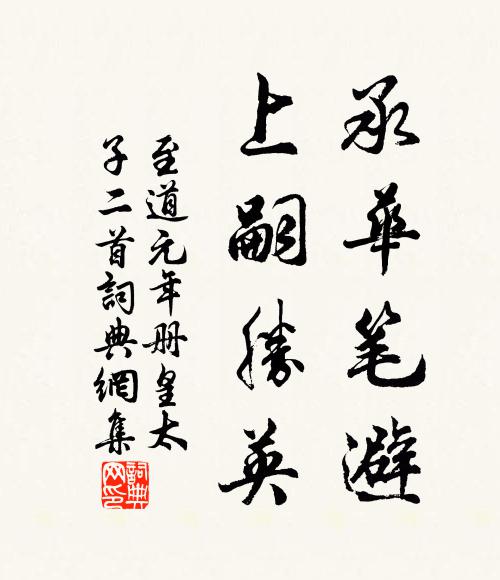 承華笔避
上嗣勝英
至道元年册皇太
子二首詞典網集
詞典
网印